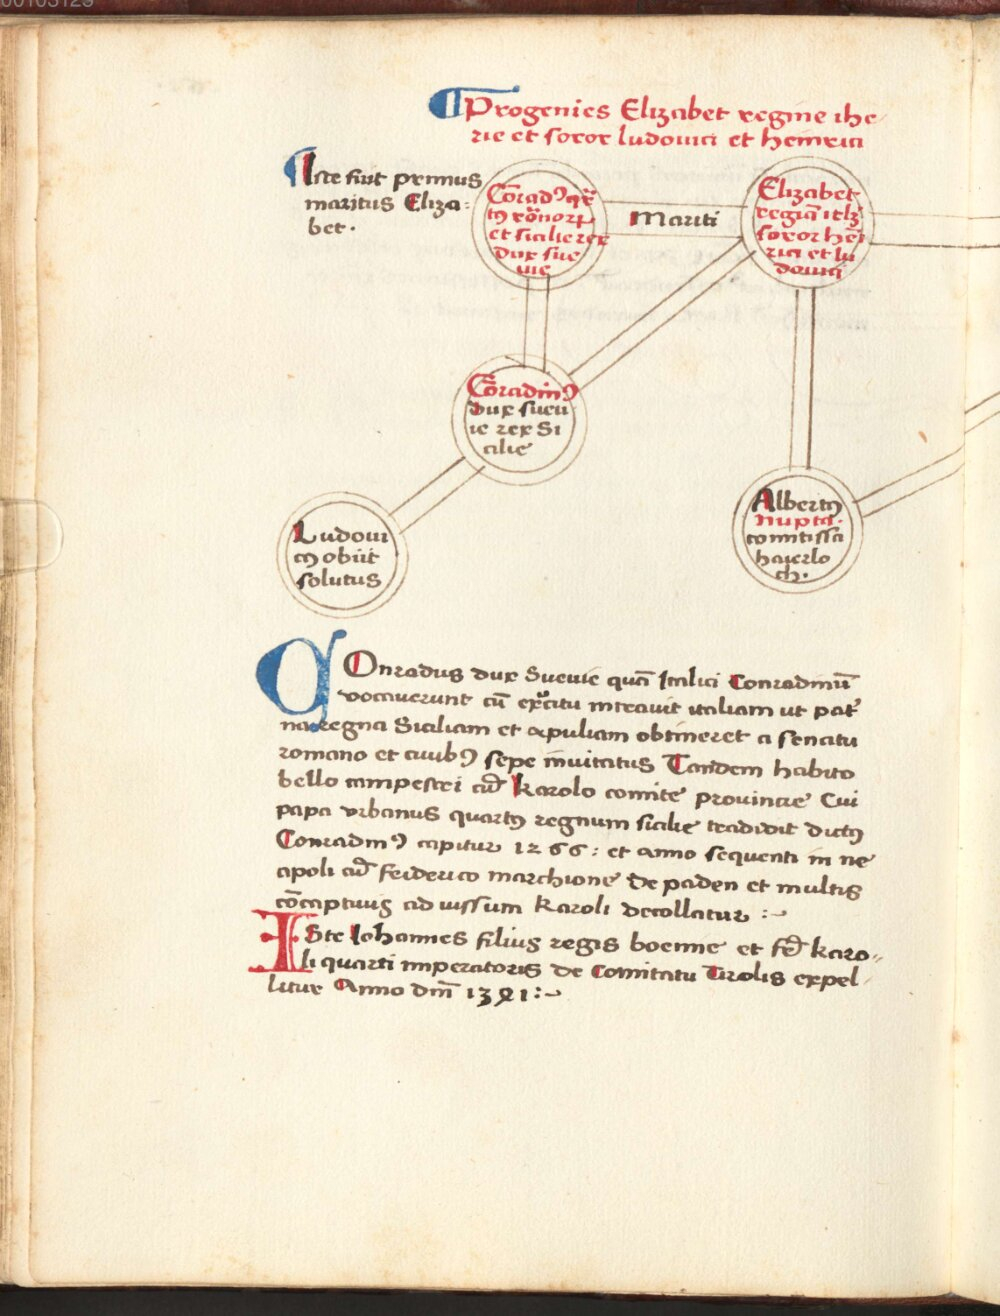 00103129
Progenies Elizabet regine ihe
rie et soror ludouici et heinrici
Iste fuit primus
maritus Eliza-
bet.
Conrad9 qr
t9 romor
et sicilie rex
dux sue
uie
Mariti
Elizabet
regia itlz
soror hei
rici et lu
douici
Coradin9
dux sueu
ie rex Si
cilie
Ludoui
c9 obiit
solutus
Albert9
nupta.
comitissa
haierlo
ch.
COnradus dux Sueuie quē Italici Conradinū
vocauerunt cū exercitu intrauit italiam ut pat
na regna Siciliam et apuliam obtineret a senatu
romano et ciuib9 sepe inuitatus Tandem habito
bello campestri cū Karolo comite prouincie Cui
papa vrbanus quart9 regnum sicilie tradidit dict9
Conradin9 capitur 1266: et anno sequenti in ne
apoli cū friderico marchione de paden et multis
cōcaptiuis ad iussum Karoli decollatur :~
ISte Iohannes filius regis boemie et fr karo-
li quarti imperatoris de Comitatu Tirolis expel-
litur Anno dm̄ 1341:~